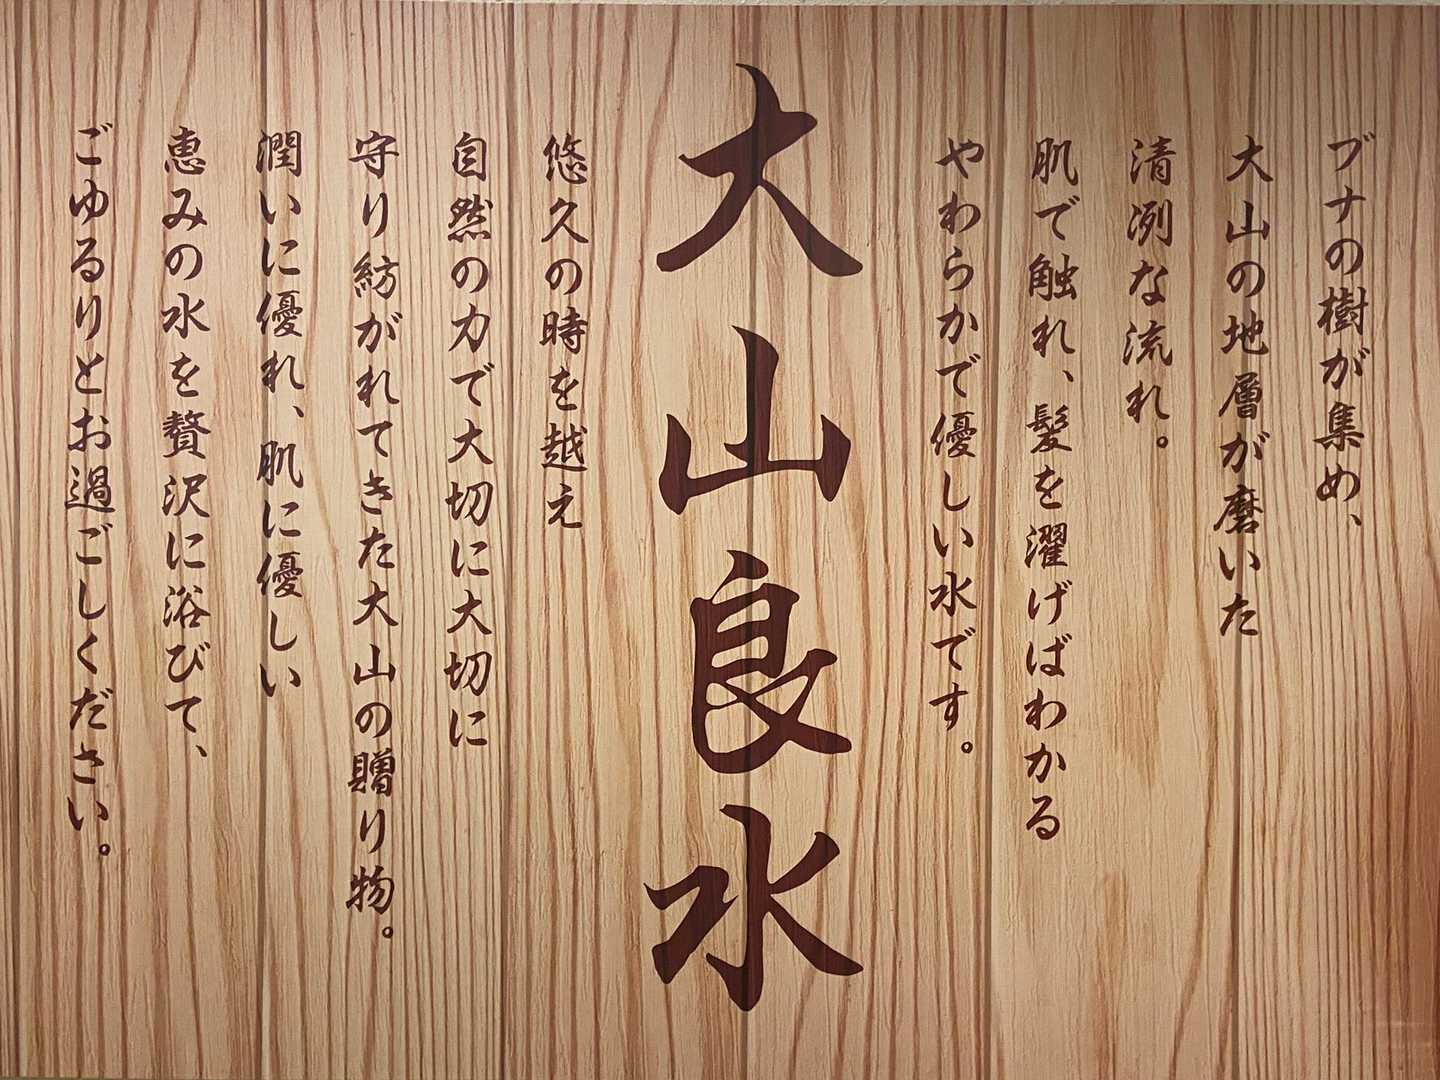 ブナの樹が集め、
大山の地層が磨いた
清冽な流れ。
肌で触れ、髪を濯げばわかる
やわらかで優しい水です。
大山良水
悠久の時を越え
自然の力で大切に大切に
守り紡がれてきた大山の贈り物。
潤いに優れ、肌に優しい
恵みの水を贅沢に浴びて、
ごゆるりとお過ごしください。